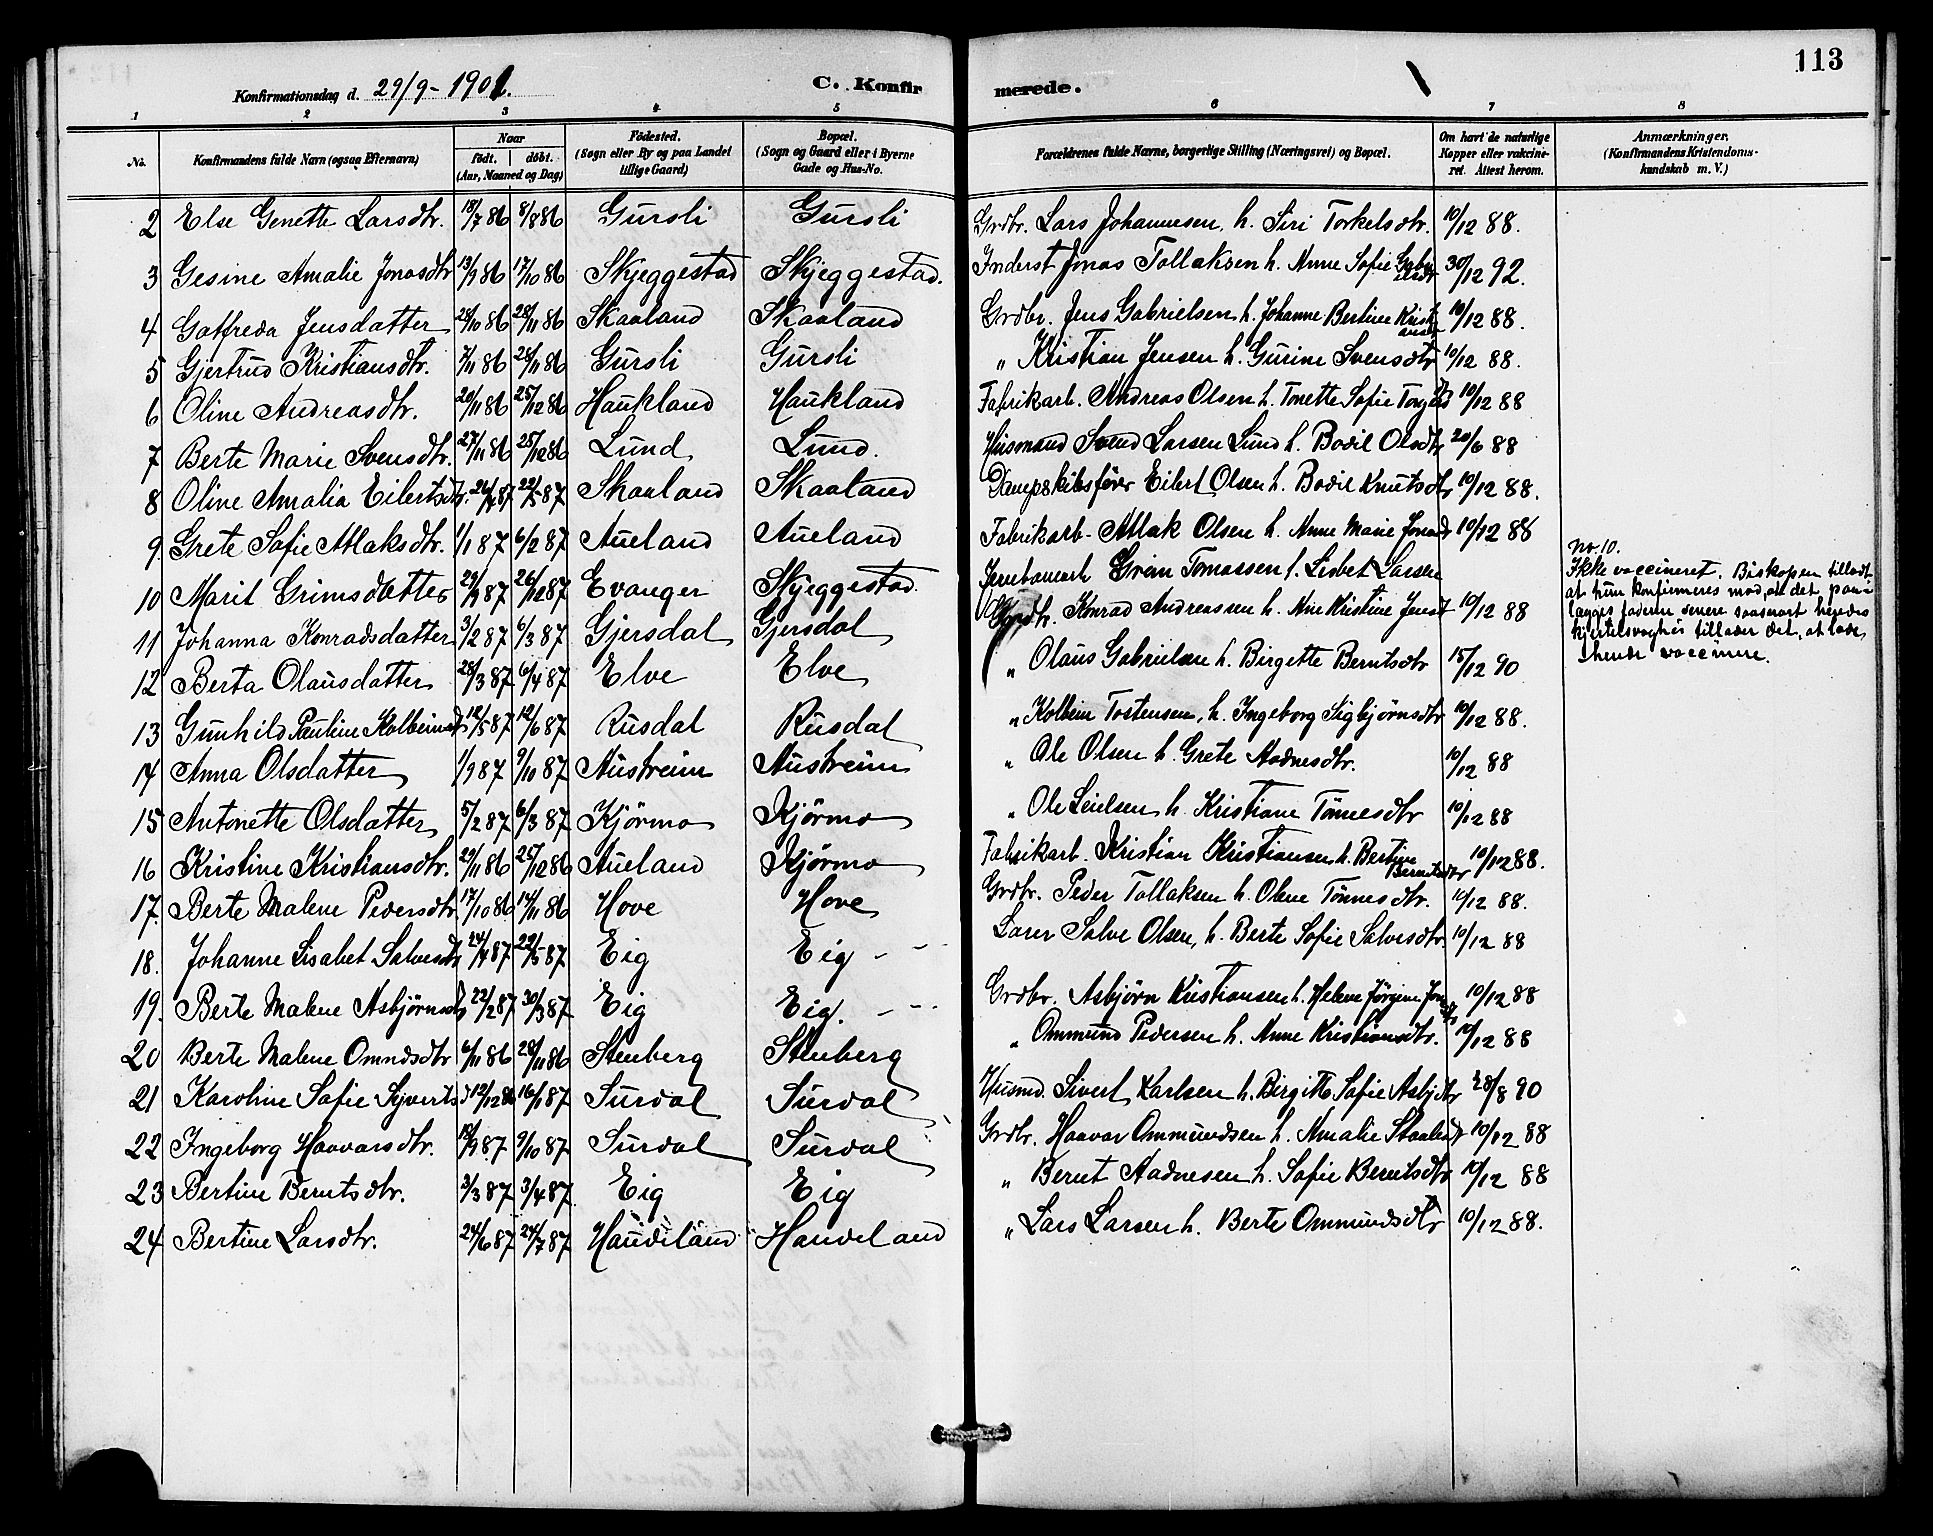 113
Konfirmationsdag d. 29/9 - 1901.
C. Konfirmerede.
1 2 3 4 5 6 7 8
No. Konfirmandens fulde Navn (ogsaa Efternavn) Naar født. døbt. (Aar, Maaned og Dag) Fødested. (Sogn eller By og paa Landet tillige Gaard) Bopæl. (Sogn og Gaard eller i Byerne Gade og Hus-No. Forældrenes fulde Navne, borgerlige Stilling (Næringsvei) og Bopæl. Om havt de naturlige Kopper eller vakcineret. Attest herom. Anmærkninger. (Konfirmandens Kristendomskundskab m. V.)
2 Else Genette Larsdtr. 18/7 86 8/8 86 Gursli Gursli Grdbr. Lars Johannesen, h. Siri Torkelsdtr. 10/12 88.
3 Gesine Amalie Jonasdtr 13/9 86 17/10 86 Skjeggestad Skjeggestad. Inderst Jonas Tollaksen h. Anne Sofie Gabrielsdtr 30/12 92.
4 Gotfreda Jensdatter 28/10 86 28/11 86 Skaaland Skaaland Grdbr. Jens Gabrielsen h. Johanne Bertine Kristiansdtr 10/12 88.
5 Gjertrud Kristiansdtr. 7/11 86 28/11 86 Gursli Gursli " Kristian Jensen h. Gurine Svensdtr 10/12 88.
6 Oline Andreasdtr. 20/11 86 25/12 86 Haukland Haukland Fabrikarb. Andreas Olsen h. Tonette Sofie 10/12 88
7 Berte Marie Svensdtr. 27/11 86 25/12 86 Lund Lund. Husmand Svend Larsen Lund h. Bodil Olsdtr 20/6 88
8 Oline Amalia Eilertsdtr. 87 87 Skaaland Skaaland Dampskibsfører Eilert Olsen h. Bodil Knutsdtr 10/12 88.
9. Grete Sofie Atlaksdtr. 1/1 87 6/2 87 Aueland Aueland Fabrikarb. Atlak Olsen h. Anne Marie Jonasdtr 10/12 88
10 Marit Grimsdatter 87 26/12 87 Evanger Skjeggestad. Jernbanearb Grim Tomassen h. Lisbet Larsen
11 Johanna Konradsdatter 3/2 87 6/3 87 Gjersdal Gjersdal Grdbr. Konrad Andreassen h. Ane Kristine Jensdtr 10/12 88
12 Berta Olausdatter 28/3 87 6/4 87 Elve Elve " Olaus Gabrielsen h. Birgette Berntsdtr 15/12 90
13 Gunhild Pauline Kolbeinsdtr 12/5 87 12/6 87 Rusdal Rusdal " Kolbein Tostensen, h. Ingeborg Sigbjørnsdtr 10/12 88.
14 Anna Olsdatter 1/9 87 9/10 87 Austreim Austreim " Ole Olsen h. Grete Aadnesdtr. 10/12 88
15 Antonette Olsdatter 5/2 87 6/3 87 Kjörmo Kjörmo " Ole h. Kristiane Tönnesdtr 10/12 88
16 Kristine Kristiansdtr. 29/11 86 25/12 86 Aueland Kjörmo Fabrikarb. Kristian Kristiansen h. Bertine Berntsdtr 10/12 88.
17. Berte Malene Pedersdtr 17/10 86 14/11 86 Hove Hove Grdbr. Peder Tollaksen h. Olene Tönnesdtr. 10/12 88.
18. Johanne Lisabet Salvesdtr 24/4 87 22/5 87 Eig Eig Lærer Salve Olsen, h. Berte Sofie Salvesdtr. 10/12 88
19. Berte Malene Asbjørnsdtr 22/2 87 20/3 87 Eig Eig. Grdbr. Asbjørn Kristiansen h. Helene Jörgine 10/12 88
20 Berte Malene Omndsdtr 6/11 86 28/11 86 Stenberg Stenberg " Ommund Pedersen h. Anne Kristiansdtr. 10/12 88
21 Karoline Sofie Syverts 12/12 86 16/1 87 Surdal Surdal Husmd. Sivert Karlsen h. Birgitte Sofie Asbjdtr 28/8 90
22 Ingeborg Haavarsdtr. 87 9/10 87 Surdal Surdal Grdbr. Haavar Ommundsen h. Amalie 10/12 88
23 Bertine Berntsdtr. 3/3 87 3/4 87 Eig Eig " Bernt Aadnesen h. Sofie Berntsdtr 10/12 88
24 Bertine Larsdtr. 24/6 87 24/7 87 Haudeland Haudeland " Lars Larsen h. Berte Ommundsdtr 10/12 88.
No. 10.
Ikke vaccineret. Biskopen tilladt
at hun konfirmeres mod, at det paa-
lægges faderen senere saasnart hendes
kjertelsvaghed tillader det, at lade
hende vaccinere.